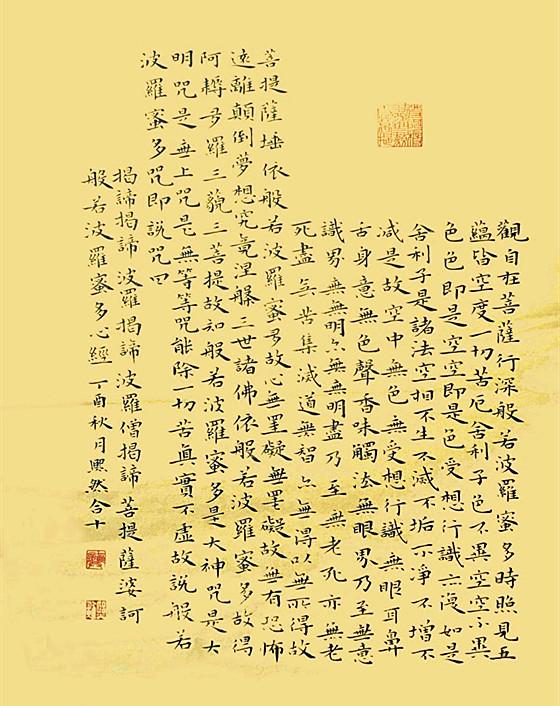 觀自在菩薩行深般若波羅蜜多時照見五
蘊皆空度一切苦厄舍利子色不異空空不異
色色即是空空即是色受想行識亦復如是
舍利子是諸法空相不生不滅不垢不淨不增不
減是故空中無色無受想行識無眼耳鼻
舌身意無色聲香味觸法無眼界乃至無意
識界無無明亦無無明盡乃至無老死亦無老
死盡無苦集滅道無智亦無得以無所得故
菩提薩埵依般若波羅蜜多故心無罣礙無罣礙故無有恐怖
遠離顛倒夢想究竟涅槃三世諸佛依般若波羅蜜多故得
阿耨多羅三藐三菩提故知般若波羅蜜多是大神咒是大
明咒是無上咒是無等等咒能除一切苦真實不虛故說般若
波羅蜜多咒即說咒曰
揭諦揭諦 波羅揭諦 波羅僧揭諦 菩提薩婆訶
般若波羅蜜多心經 丁酉秋月熙然合十